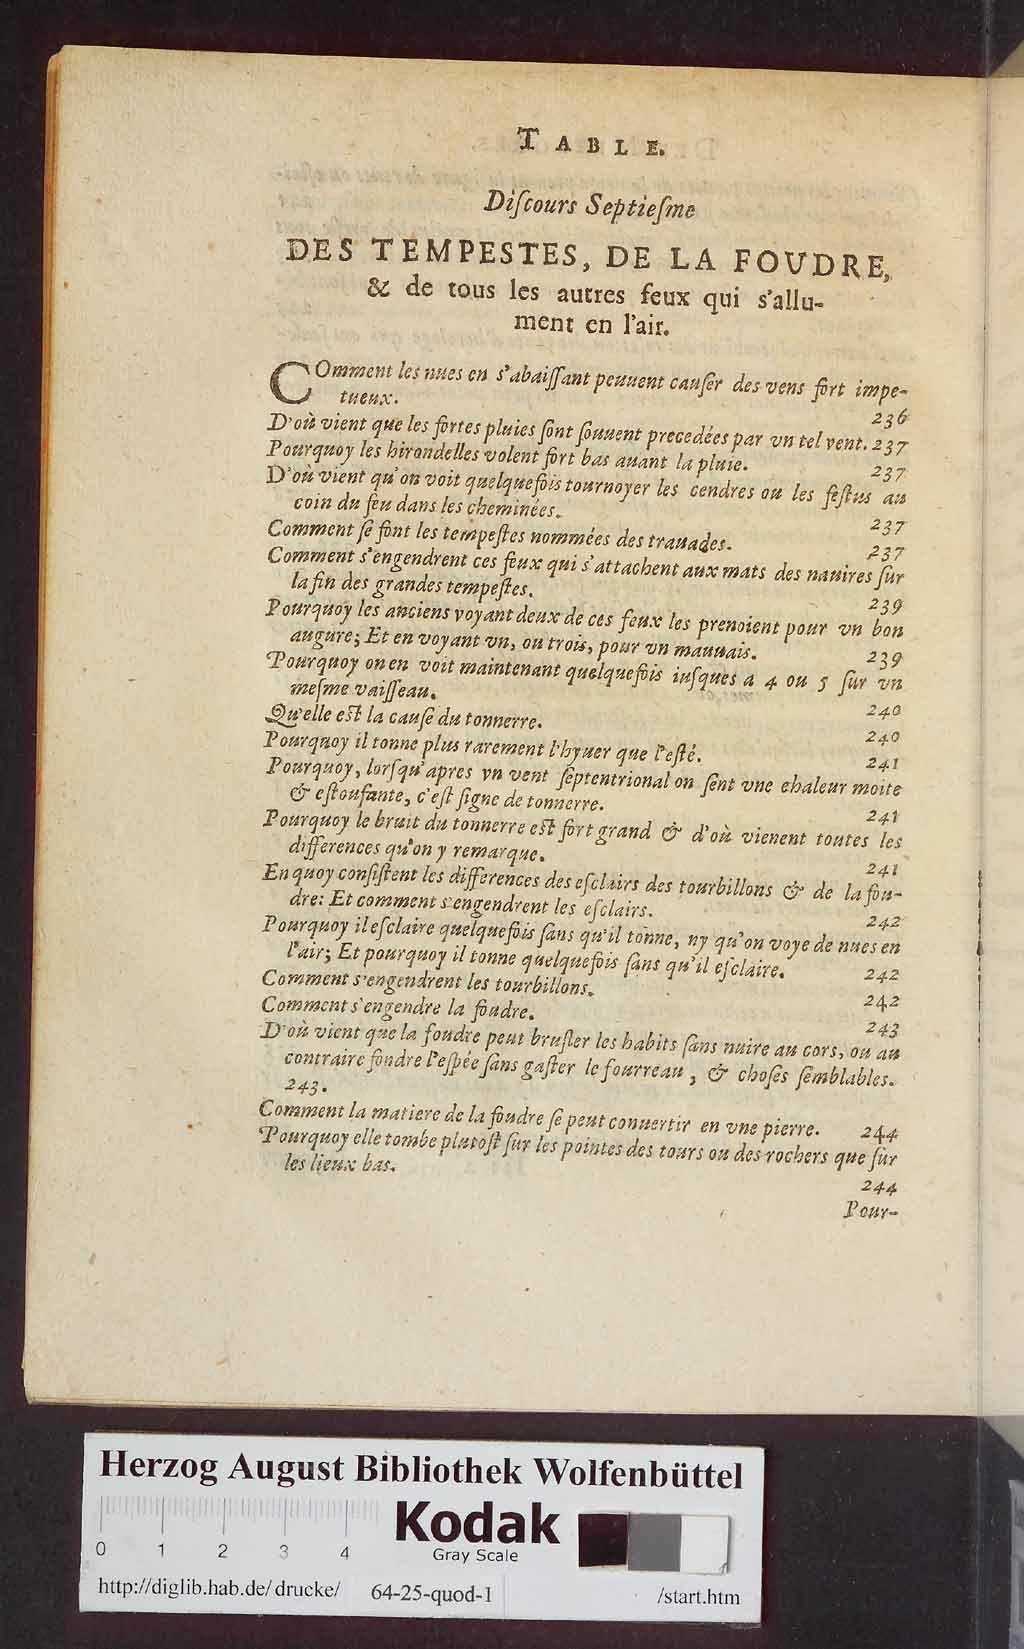 TABLE.
Diſcours Septieſme
DES TEMPESTES, DE LA FOVDRE,
& de tous les autres feux qui s'allu-
ment en l'air.
COmment les nues en s'abaiſſant peuuent cauſer des vens fort impe-
tueux. 236
D'où vient que les fortes pluies ſont ſouuent precedées par vn tel vent. 237
Pourquoy les hirondelles volent fort bas auant la pluie. 237
D'où vient qu'on voit quelquefois tournoyer les cendres ou les feſtus au
coin du feu dans les cheminées. 237
Comment ſe font les tempeſtes nommées des trauades. 237
Comment s'engendrent ces feux qui s'attachent aux mats des nauires ſur
la fin des grandes tempeſtes. 239
Pourquoy les anciens voyant deux de ces feux les prenoient pour vn bon
augure; Et en voyant vn, ou trois, pour vn mauuais. 239
Pourquoy on en voit maintenant quelquefois iuſques a 4 ou 5 ſur vn
meſme vaiſſeau. 240
Qu'elle eſt la cauſe du tonnerre. 240
Pourquoy il tonne plus rarement l'hyuer que l'eſté. 241
Pourquoy, lorſqu'apres vn vent ſeptentrional on ſent vne ehaleur moite
& eſtoufante, c'eſt ſigne de tonnerre. 241
Pourquoy le bruit du tonnerre eſt fort grand & d'où vienent toutes les
differences qu'on y remarque. 241
En quoy conſiſtent les differences des eſclairs des tourbillons & de la fou-
dre: Et comment s'engendrent les eſclairs. 242
Pourquoy il eſclaire quelquefois ſans qu'il tonne, ny qu'on voye de nues en
l'air; Et pourquoy il tonne quelquefois ſans qu'il eſclaire. 242
Comment s'engendrent les tourbillons. 242
Comment s'engendre la foudre. 243
D'où vient que la foudre peut bruſler les habits ſans nuire au cors, ou au
contraire fondre l'eſpée ſans gaſter le fourreau, & choſes ſemblables.
243.
Comment la matiere de la foudre ſe peut conuertir en vne pierre. 244
Pourquoy elle tombe plutoſt ſur les pointes des tours ou des rochers que ſur
les lieux bas. 244
Pour-
Herzog August Bibliothek Wolfenbüttel
0 1 2 3 4
Kodak
Gray Scale
http://diglib.hab.de/drucke/ 64-25-quod-1 /start.htm